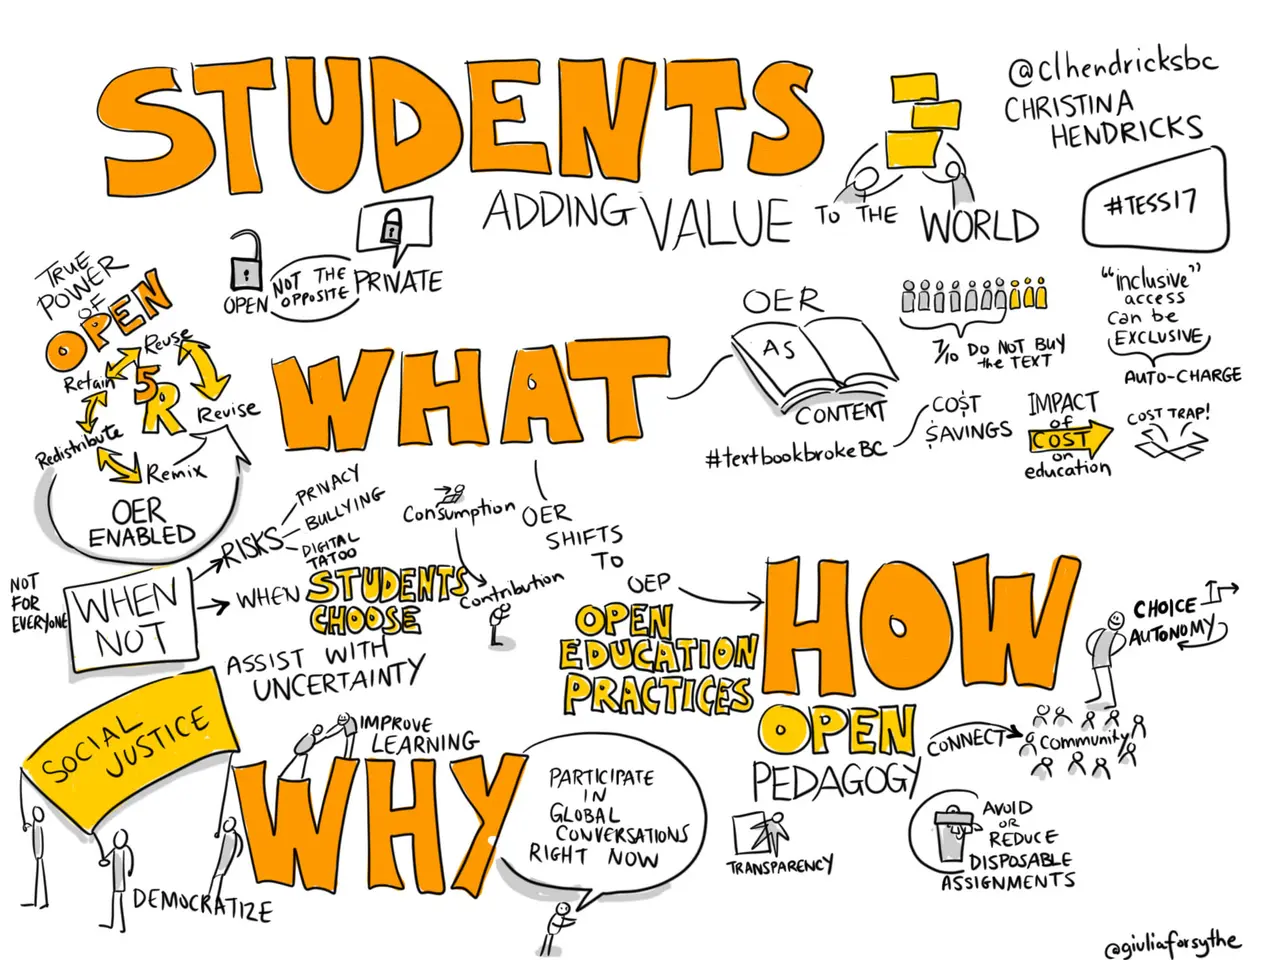 STUDENTS
ADDING VALUE TO THE WORLD
@clhendricksbc
CHRISTINA
HENDRICKS
#TESS17
OPEN
NOT THE
OPPOSITE
PRIVATE
TRUE
POWER
OF
OPEN
5R
Reuse
Revise
Remix
Redistribute
Retain
OER
ENABLED
WHAT
OER
AS
CONTENT
#textbookbrokeBC
COST
$AVINGS
7/10 DO NOT BUY
the TEXT
IMPACT
of
COST
on
education
"inclusive"
access
can be
EXCLUSIVE
AUTO-CHARGE
COST TRAP!
NOT
FOR
EVERYONE
WHEN
NOT
RISKS
PRIVACY
BULLYING
DIGITAL
TATOO
WHEN STUDENTS
CHOOSE
ASSIST WITH
UNCERTAINTY
Consumption
Contribution
OER
SHIFTS
TO
OEP
OPEN
EDUCATION
PRACTICES
HOW
CHOICE
AUTONOMY
OPEN
PEDAGOGY
CONNECT
Community
TRANSPARENCY
AVOID
OR
REDUCE
DISPOSABLE
ASSIGNMENTS
WHY
SOCIAL
JUSTICE
DEMOCRATIZE
IMPROVE
LEARNING
PARTICIPATE
IN
GLOBAL
CONVERSATIONS
RIGHT NOW
@giuliaforsythe